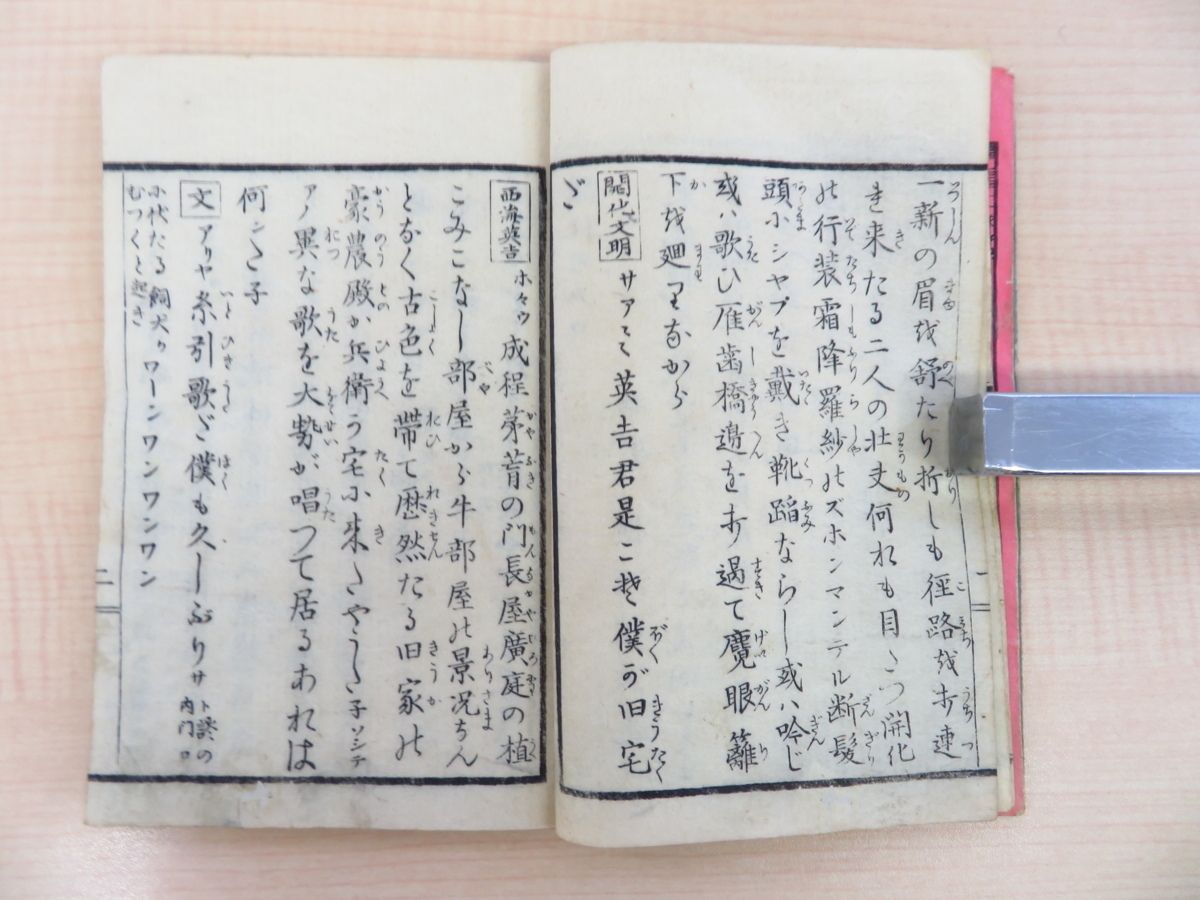 一新の眉を舒たり折しも径路を打連
き来たる二人の壮夫何れも目立つ開化
の行装霜降羅紗のズボンマンテル断髮
頭小シャプを戴き靴踏ならし或ハ吟じ
或ハ歌ひ雁歯橋邉を打過て魔眼籬
下を廻りながら
開化文明 サアヽヽ英吉君是こそ僕が旧宅
だ
西海英吉 ホヽウ成程茅葺の門長屋廣庭の植
こみこなし部屋から牛部屋の景况なん
となく古色を帶て歴然たる旧家の
豪農殿か兵衛う宅小来たやうだ子ソシテ
アノ異な歌を大勢が唱つて居るあれは
何ンだ子
文 アリヤ糸引歌だ僕も久しぶりサ ト談の内門口
小伏たる飼犬カむつくと起き ワーンワンワンワン